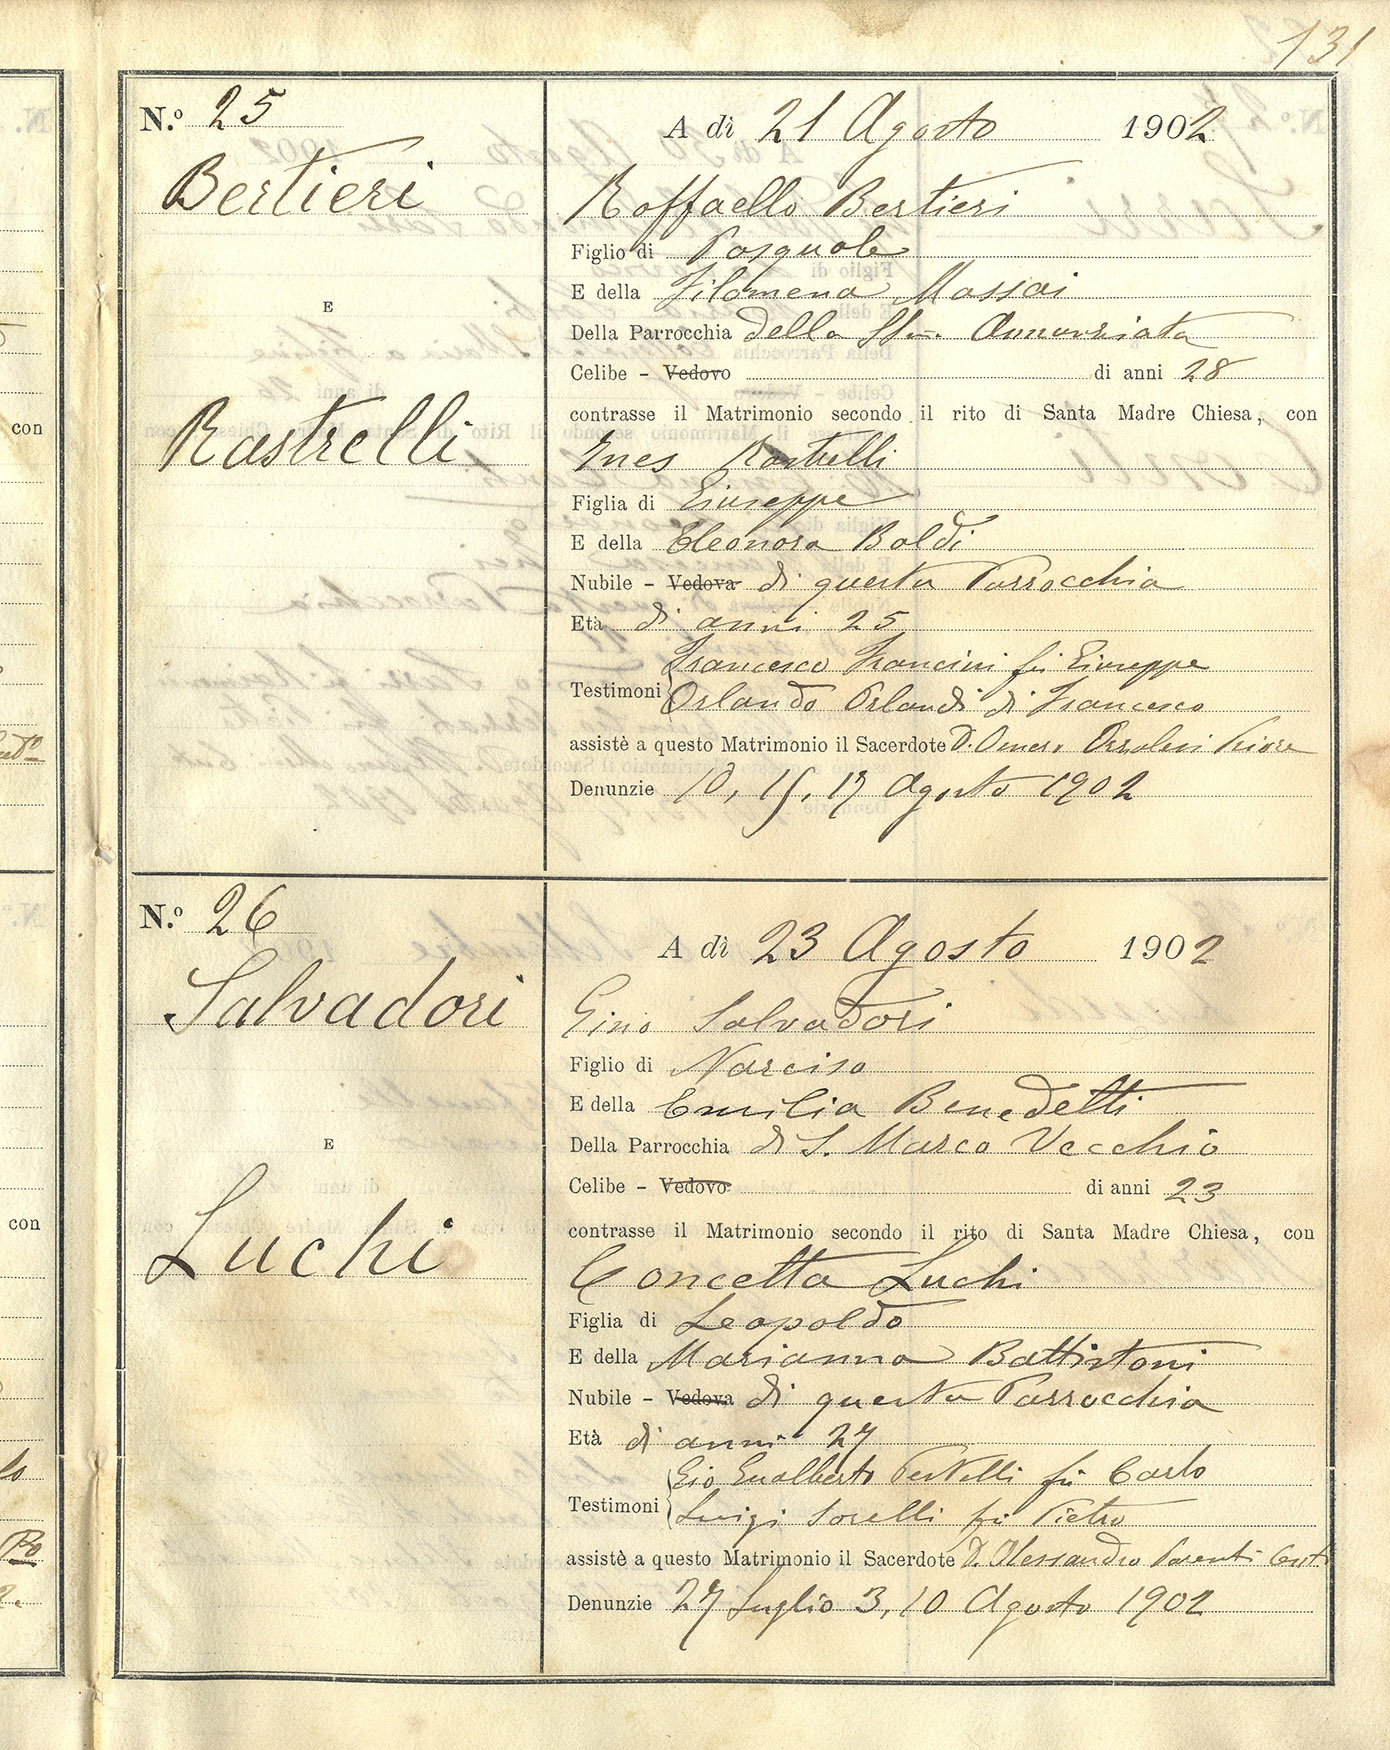 131
N.º 25
Bertieri
E
Rastrelli
A dì 21 Agosto 1902
Raffaello Bertieri
Figlio di Pasquale
E della Filomena Massai
Della Parrocchia della SSma. Annunziata
Celibe - Vedovo di anni 28
contrasse il Matrimonio secondo il rito di Santa Madre Chiesa, con
Ines Rastrelli
Figlia di Giuseppe
E della Eleonora Baldi
Nubile - Vedova di questa Parrocchia
Età di anni 25
Francesco Francini fu Giuseppe
Testimoni Orlando Orlandi di Francesco
assistè a questo Matrimonio il Sacerdote D. Omero Orzalesi Priore
Denunzie 10, 15, 17 Agosto 1902
N.º 26
Salvadori
E
Luchi
A dì 23 Agosto 1902
Gino Salvadori
Figlio di Narciso
E della Emilia Benedetti
Della Parrocchia di S. Marco Vecchio
Celibe - Vedovo di anni 23
contrasse il Matrimonio secondo il rito di Santa Madre Chiesa, con
Concetta Luchi
Figlia di Leopoldo
E della Marianna Battistoni
Nubile - Vedova di questa Parrocchia
Età di anni 27
Gio Gualberto fu Carlo
Testimoni Luigi Sorelli fu Pietro
assistè a questo Matrimonio il Sacerdote D. Alessandro Parenti
Denunzie 27 Luglio 3, 10 Agosto 1902
con
con